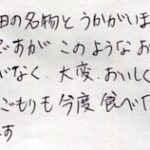 田の名物とうかがいま
ですが このような お
がなく 大変 おいしく
ごもりも今度 食べた
す